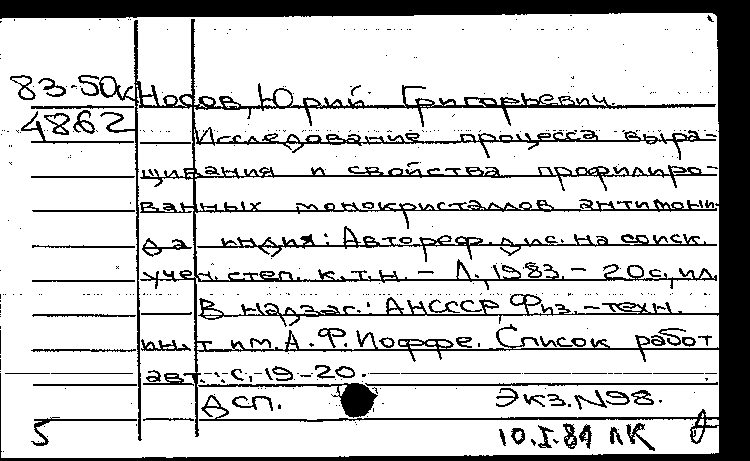 83-50к Носов, Юрий Григорьевич.
4862 Исследование процесса выра-
щивания и свойства профилиро-
ванных монокристаллов антимони-
да индия: Автореф. дис. на соиск.
учен. степ. к.т.н. – Л., 1983. – 20 с., ил.
В надзаг.: АН СССР, Физ.-техн.
ин-т им. А.Ф. Иоффе. Список работ
авт.: с. 19-20.
ДСП. Экз. N98.
5 10.I.84 ЛК